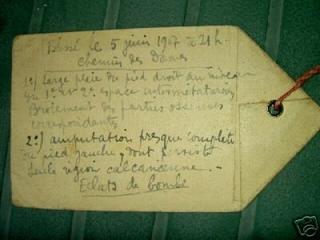 Blessé le 5 juin 1917 à 21 h.
Chemin des Dames
1º) large plaie du pied droit au niveau
du 1er et 2e espace intermétatarsien
Broiement des parties osseuses
correspondantes
2º) amputation presque complète
du pied gauche, dont persiste
seule région calcanéenne. -
Eclats de bombe